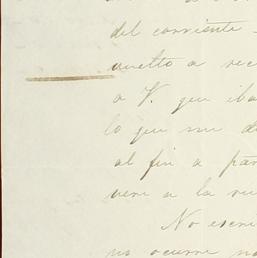 del corriente
vuelto a rec
a V. que iba
lo que me d
al fin a par
vere a la vu
No escri
no ocurre na